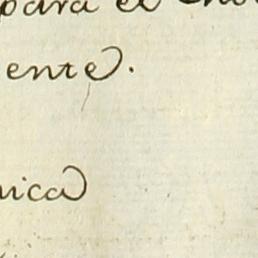 para el
ente.
nica